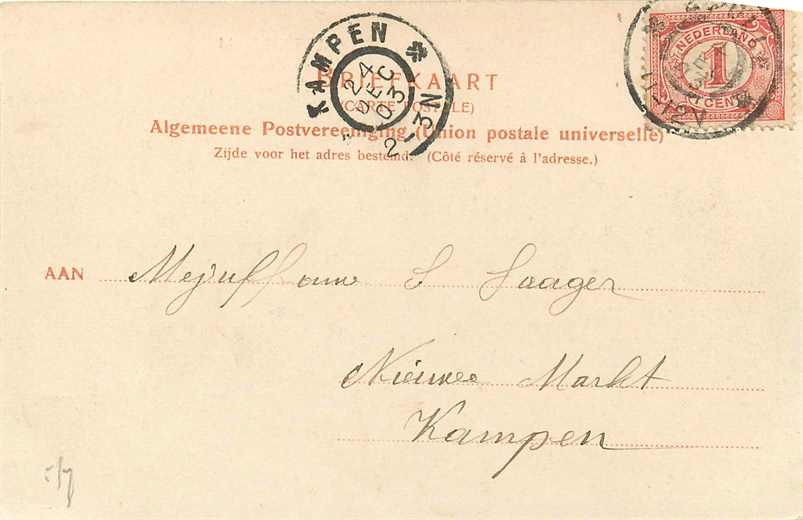 KAMPEN
24
DEC
03
2-3N
NEDERLAND
1
1 CENT
BRIEFKAART
(CARTE POSTALE)
Algemeene Postvereeniging (Union postale universelle)
Zijde voor het adres bestemd. (Côté réservé à l'adresse.)
AAN Mejuffouw S Saager
Nieuwe Markt
Kampen